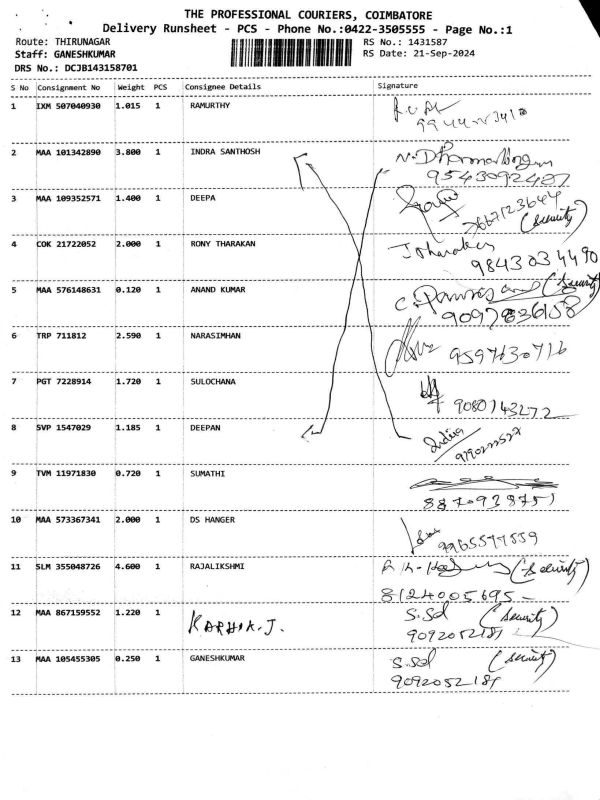 THE PROFESSIONAL COURIERS, COIMBATORE
Delivery Runsheet - PCS - Phone No.:0422-3505555 - Page No.:1
Route: THIRUNAGAR RS No.: 1431587
Staff: GANESHKUMAR RS Date: 21-Sep-2024
DRS No.: DCJB143158701
S No Consignment No Weight PCS Consignee Details Signature
1 IXM 507040930 1.015 1 RAMURTHY
2 MAA 101342890 3.800 1 INDRA SANTHOSH
9543092427
3 MAA 109352571 1.400 1 DEEPA
7667123644
(security)
4 COK 21722052 2.000 1 RONY THARAKAN Jtharakan
9843034490
5 MAA 576148631 0.120 1 ANAND KUMAR (Security)
9097836158
6 TRP 711812 2.590 1 NARASIMHAN
9597630716
7 PGT 7228914 1.720 1 SULOCHANA
9080743272
8 SVP 1547029 1.185 1 DEEPAN Indira
9 TVM 11971830 0.720 1 SUMATHI
8870938751
10 MAA 573367341 2.000 1 DS HANGER
9965577559
11 SLM 355048726 4.600 1 RAJALIKSHMI (Security)
8124005695
12 MAA 867159552 1.220 1 S.Sel (Security)
9092052181
13 MAA 105455305 0.250 1 GANESHKUMAR S.Sel (Security)
9092052181